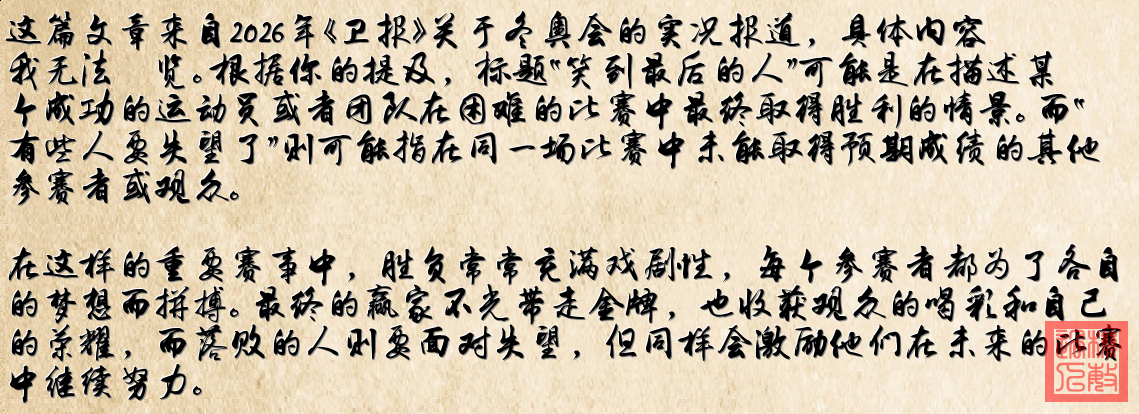 这篇文章来自2026年《卫报》关于冬奥会的实况报道，具体内容
我无法 览。根据你的提及，标题“笑到最后的人”可能是在描述某
个成功的运动员或者团队在困难的比赛中最终取得胜利的情景。而“
有些人要失望了”则可能指在同一场比赛中未能取得预期成绩的其他
参赛者或观众。
在这样的重要赛事中，胜负常常充满戏剧性，每个参赛者都为了各自
的梦想而拼搏。最终的赢家不光带走金牌，也收获观众的喝彩和自己
的荣耀，而落败的人则要面对失望，但同样会激励他们在未来的比赛
中继续努力。